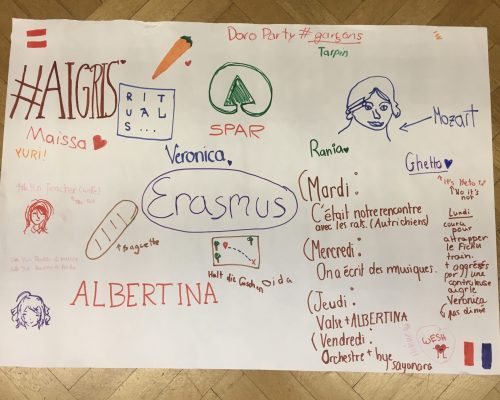 Doro Party #garçons
Tarpin
#AIGRIS
RIT
UAL
S...
SPAR
Mozart
Maissa
YURI!
Veronica
Rania
Ghetto
Erasmus
Baguette
Halt die Goschen Oida
ALBERTINA
Mardi:
C'était notre rencontre
avec les rats. (Autrichiens)
Mercredi:
On a écrit des musiques.
Jeudi:
Valse + ALBERTINA
Vendredi:
Orchestre + bye
sayonara
No it's
not
Lundi
couru
pour
attraper
le
train.
+ aggréssés
par
une
contrôleuse
aigrie
Veronica
pas dîné
WESH